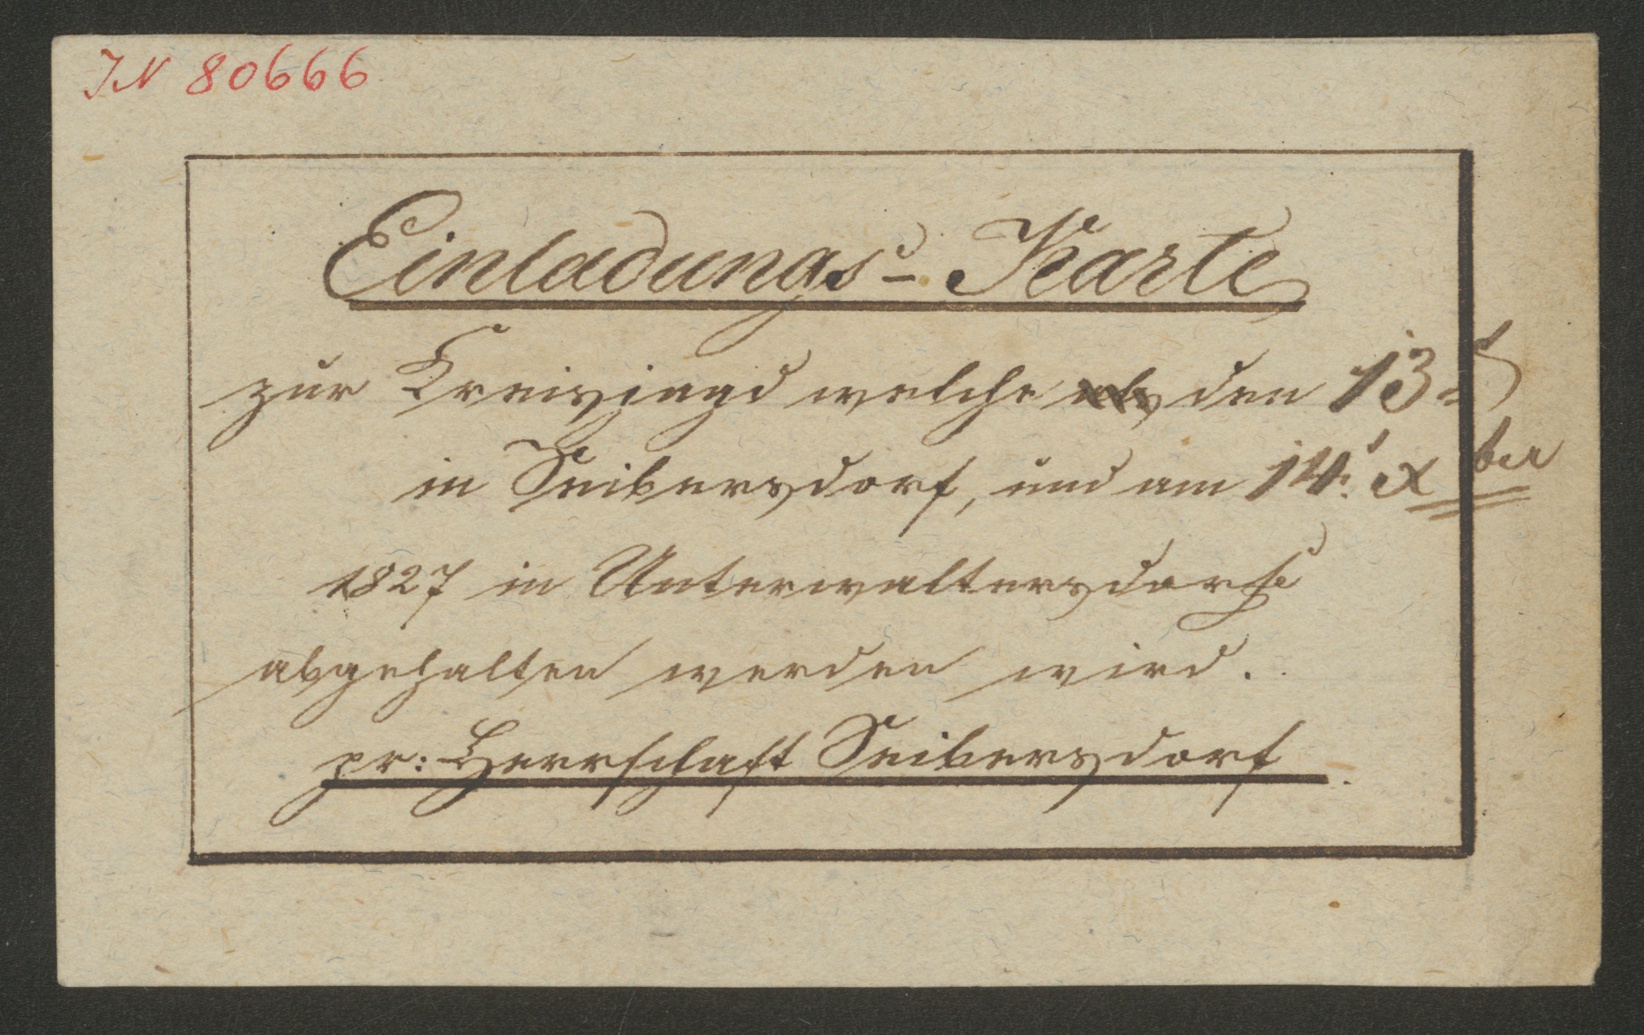 IN 80666
Einladungs-Karte
zur Kreisjagd welche den 13t
in Seibersdorf, und am 14t: Xber
1827 in Unterwaltersdorf
abgehalten werden wird.
pr: Herrschaft Seibersdorf